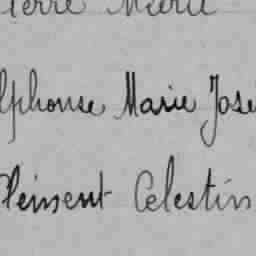 ierre Marie
lphonse Marie José
Clément Celestin